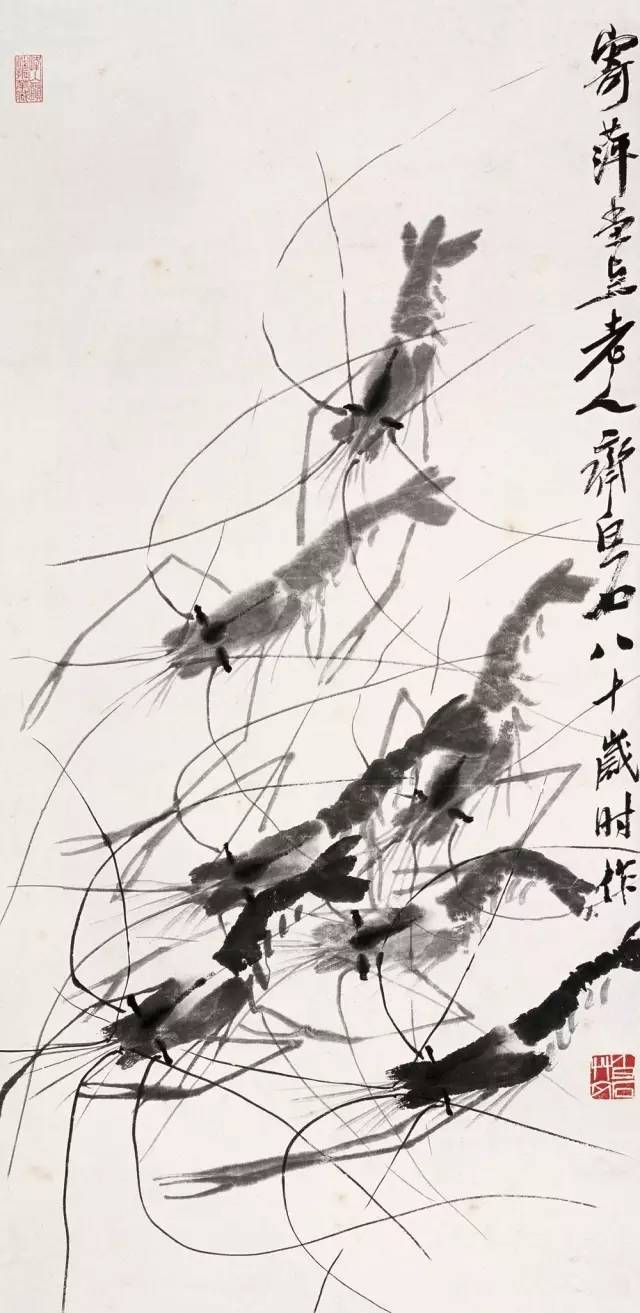 寄萍堂上老人齊白石八十歲时作